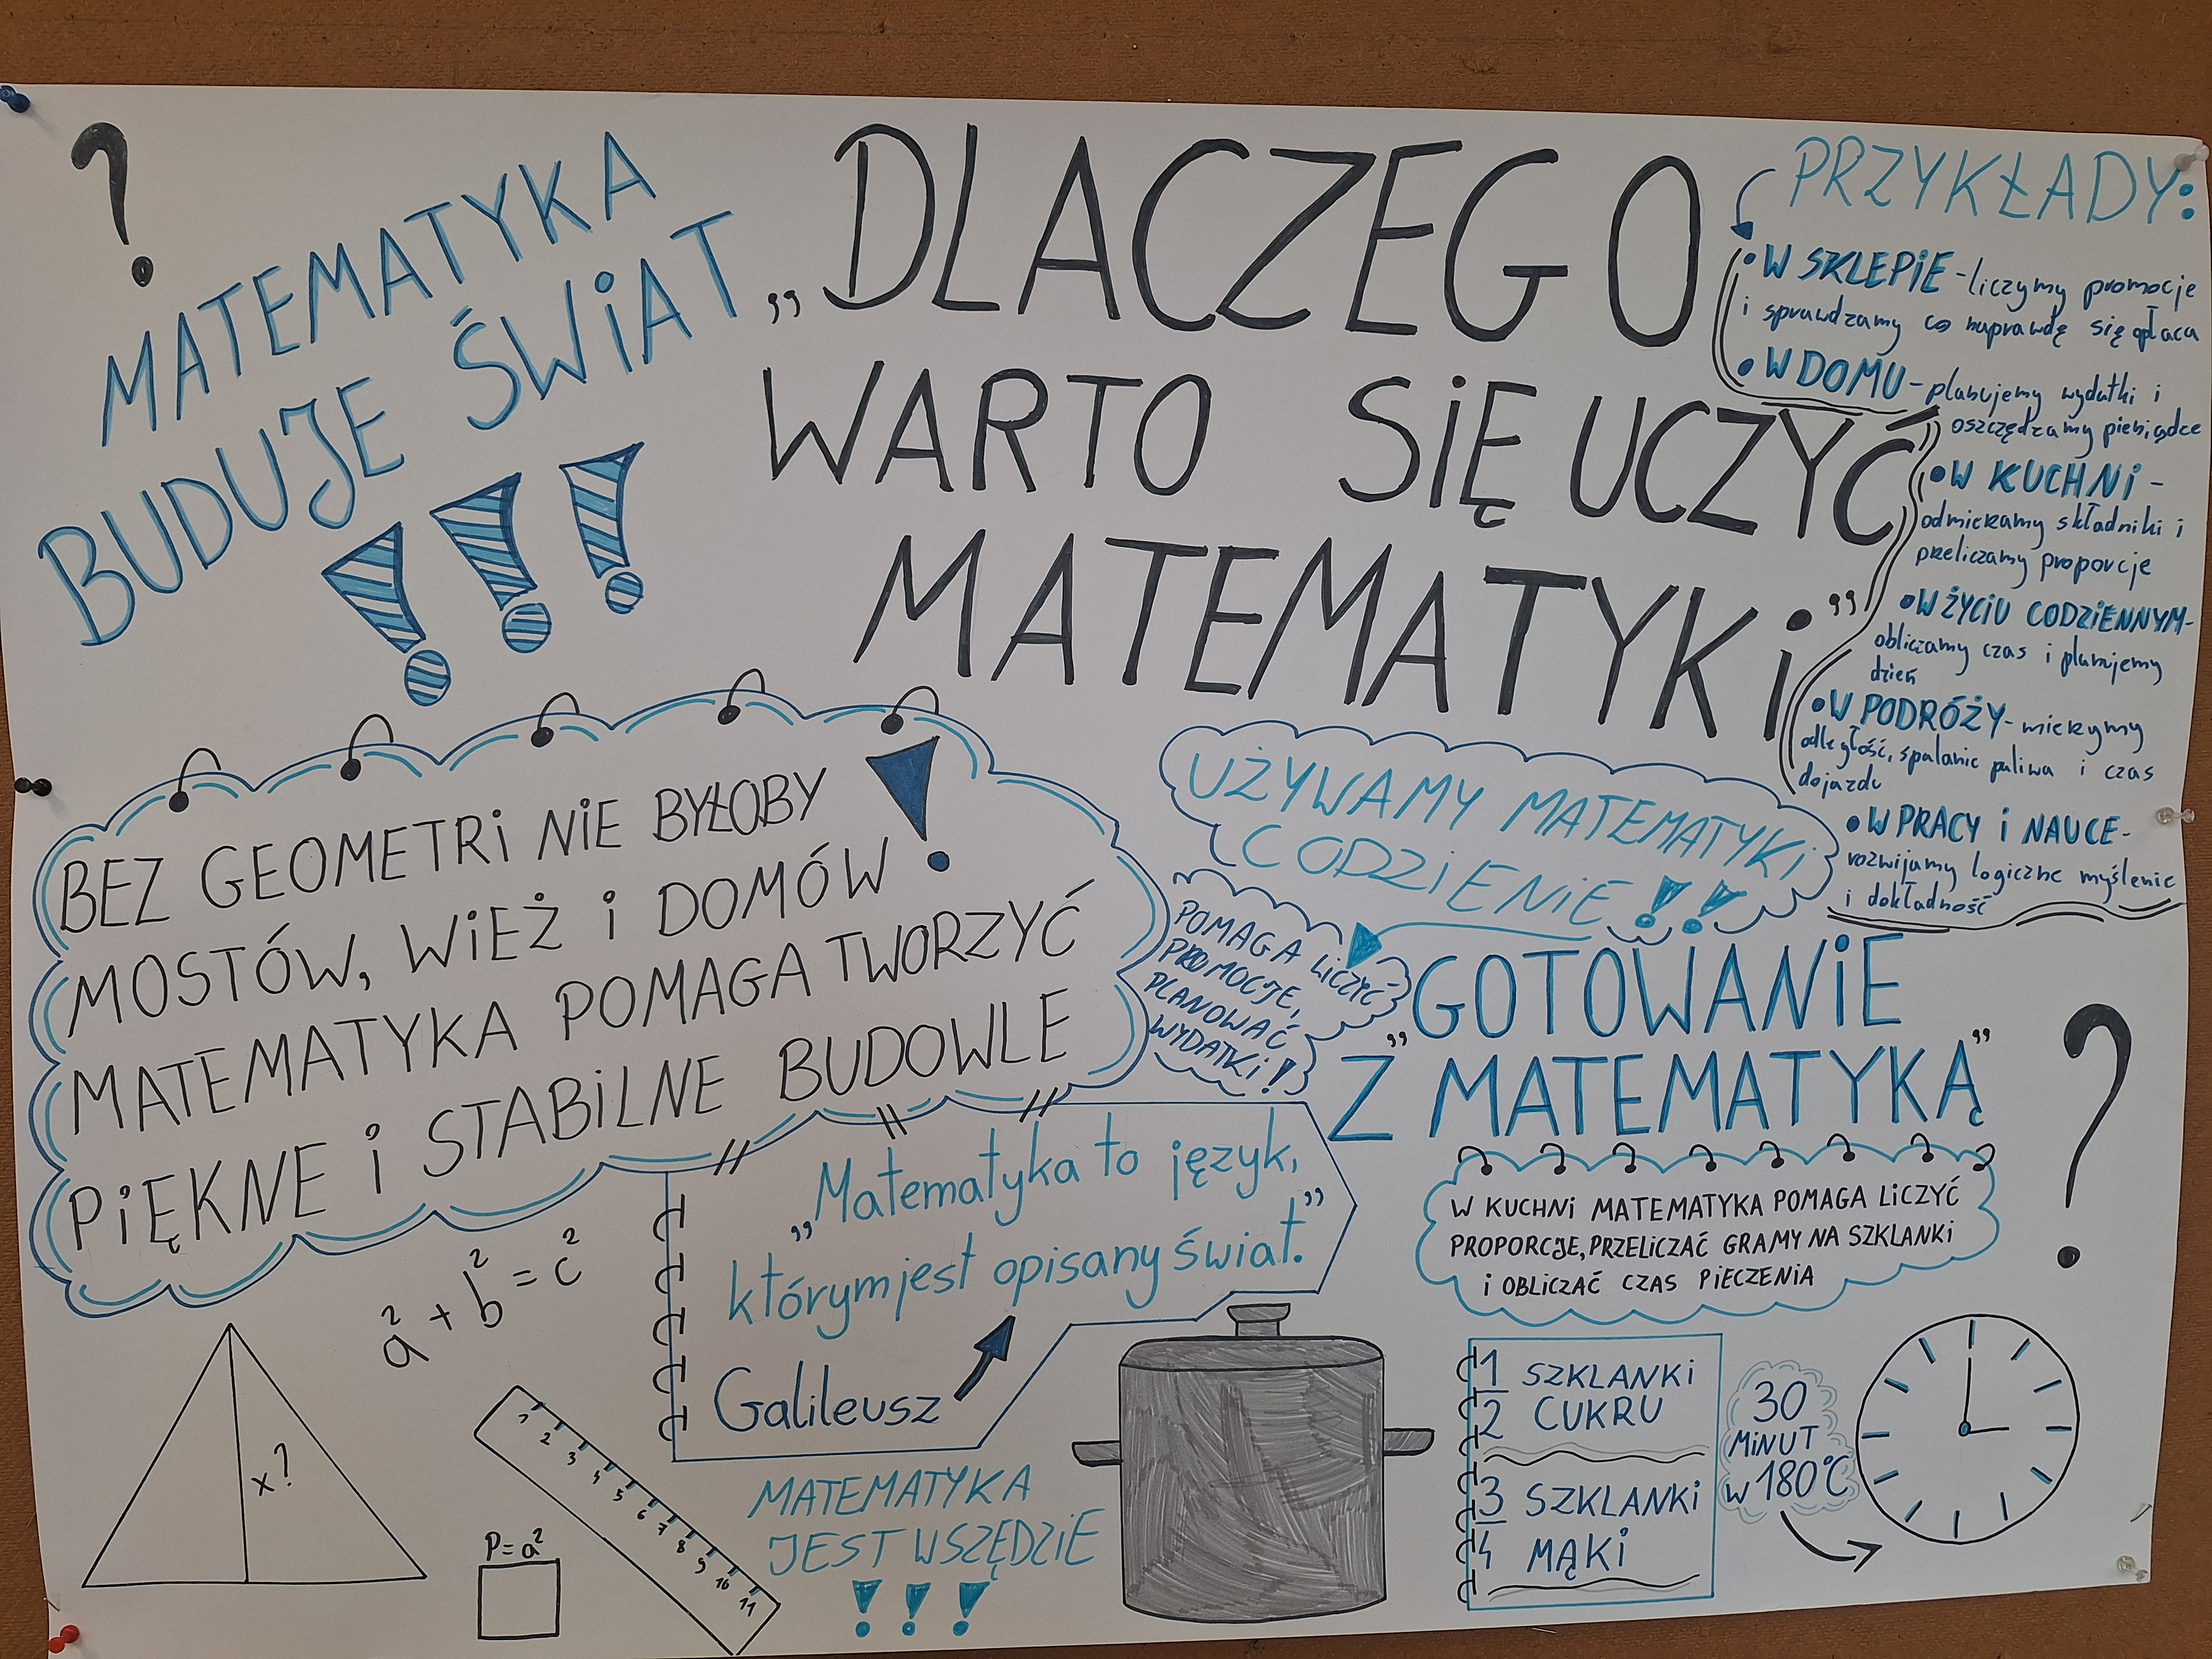 ?
MATEMATYKA
BUDUJE ŚWIAT
!!!
„DLACZEGO
WARTO SIĘ UCZYĆ
MATEMATYKI”
PRZYKŁADY:
• W SKLEPIE - liczymy promocje
i sprawdzamy co naprawdę się opłaca
• W DOMU - planujemy wydatki i
oszczędzamy pieniądze
• W KUCHNI -
odmierzamy składniki i
przeliczamy proporcje
• W ŻYCIU CODZIENNYM -
obliczamy czas i planujemy
dzień
• W PODRÓŻY - mierzymy
odległość, spalanie paliwa i czas
dojazdu
• W PRACY I NAUCE -
rozwijamy logiczne myślenie
i dokładność
BEZ GEOMETRI NIE BYŁOBY
MOSTÓW, WIEŻ I DOMÓW!
MATEMATYKA POMAGA TWORZYĆ
PIĘKNE I STABILNE BUDOWLE
UŻYWAMY MATEMATYKI
CODZIENIE!!
POMAGA LICZYĆ
PROMOCJE,
PLANOWAĆ
WYDATKI!
„GOTOWANIE
Z MATEMATYKĄ”
?
W KUCHNI MATEMATYKA POMAGA LICZYĆ
PROPORCJE, PRZELICZAĆ GRAMY NA SZKLANKI
I OBLICZAĆ CZAS PIECZENIA
„Matematyka to język,
którym jest opisany świat.”
Galileusz
a² + b² = c²
x?
P=a²
1 2 3 4 5 6 7 8 9 10 11
MATEMATYKA
JEST WSZĘDZIE
!!!
1/2 SZKLANKI
CUKRU
3/4 SZKLANKI
MĄKI
30
MINUT
W 180°C